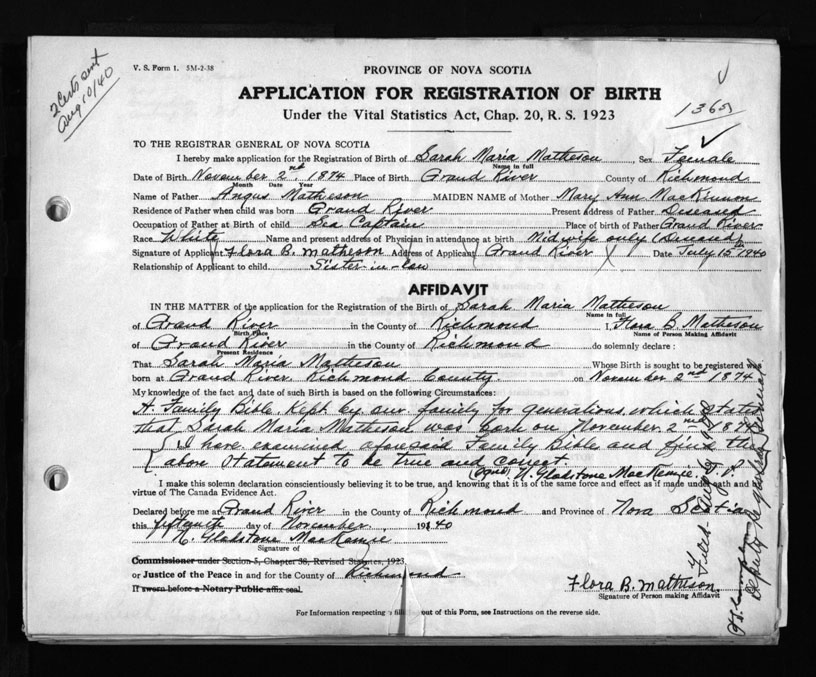 V. S. Form 1. 5M-2-38
2 Certs sent
Aug 10/40
PROVINCE OF NOVA SCOTIA
APPLICATION FOR REGISTRATION OF BIRTH
Under the Vital Statistics Act, Chap. 20, R. S. 1923
TO THE REGISTRAR GENERAL OF NOVA SCOTIA
I hereby make application for the Registration of Birth of Sarah Maria Matheson Sex Female
Name in full
Date of Birth November 2nd. 1874 Place of Birth Grand River County of Richmond
Month Date Year
Name of Father Angus Matheson MAIDEN NAME of Mother Mary Ann MacKinnon
Residence of Father when child was born Grand River Present address of Father Deseased
Occupation of Father at Birth of child Sea Captain Place of birth of Father Grand River
Race White Name and present address of Physician in attendance at birth Midwife only
Signature of Applicant Flora B. Matheson Address of Applicant Grand River Date July 15th 1940
Relationship of Applicant to child Sister-in-law
AFFIDAVIT
IN THE MATTER of the application for the Registration of the Birth of Sarah Maria Matheson
Name in full
of Grand River in the County of Richmond I, Flora B. Matheson
Birth Place Name of Person Making Affidavit
of Grand River in the County of Richmond do solemnly declare:
Present Residence
That Sarah Maria Matheson Whose Birth is sought to be registered was
born at Grand River Richmond County. on November 2nd 1874
My knowledge of the fact and date of such Birth is based on the following Circumstances:
A Family Bible kept by our family for generations, which states
that Sarah Maria Matheson was born on November 2nd 1874
I have examined aforesaid Family Bible and find the
above Statement to be true and correct
N. Gladstone MacKenzie J. P.
I make this solemn declaration conscientiously believing it to be true, and knowing that it is of the same force and effect as if made under oath and by
virtue of The Canada Evidence Act.
Declared before me at Grand River in the County of Richmond and Province of Nova Scotia
this fifteenth day of November 1940
N. Gladstone MacKenzie
Signature of
Commissioner under Section 5, Chapter 36, Revised Statutes, 1923
or Justice of the Peace in and for the County of Richmond
If sworn before a Notary Public affix seal.
Flora B. Matheson
Signature of Person making Affidavit
For Information respecting filling out of this Form, see Instructions on the reverse side.
Filed Aug 9 1940
Deputy Registrar General